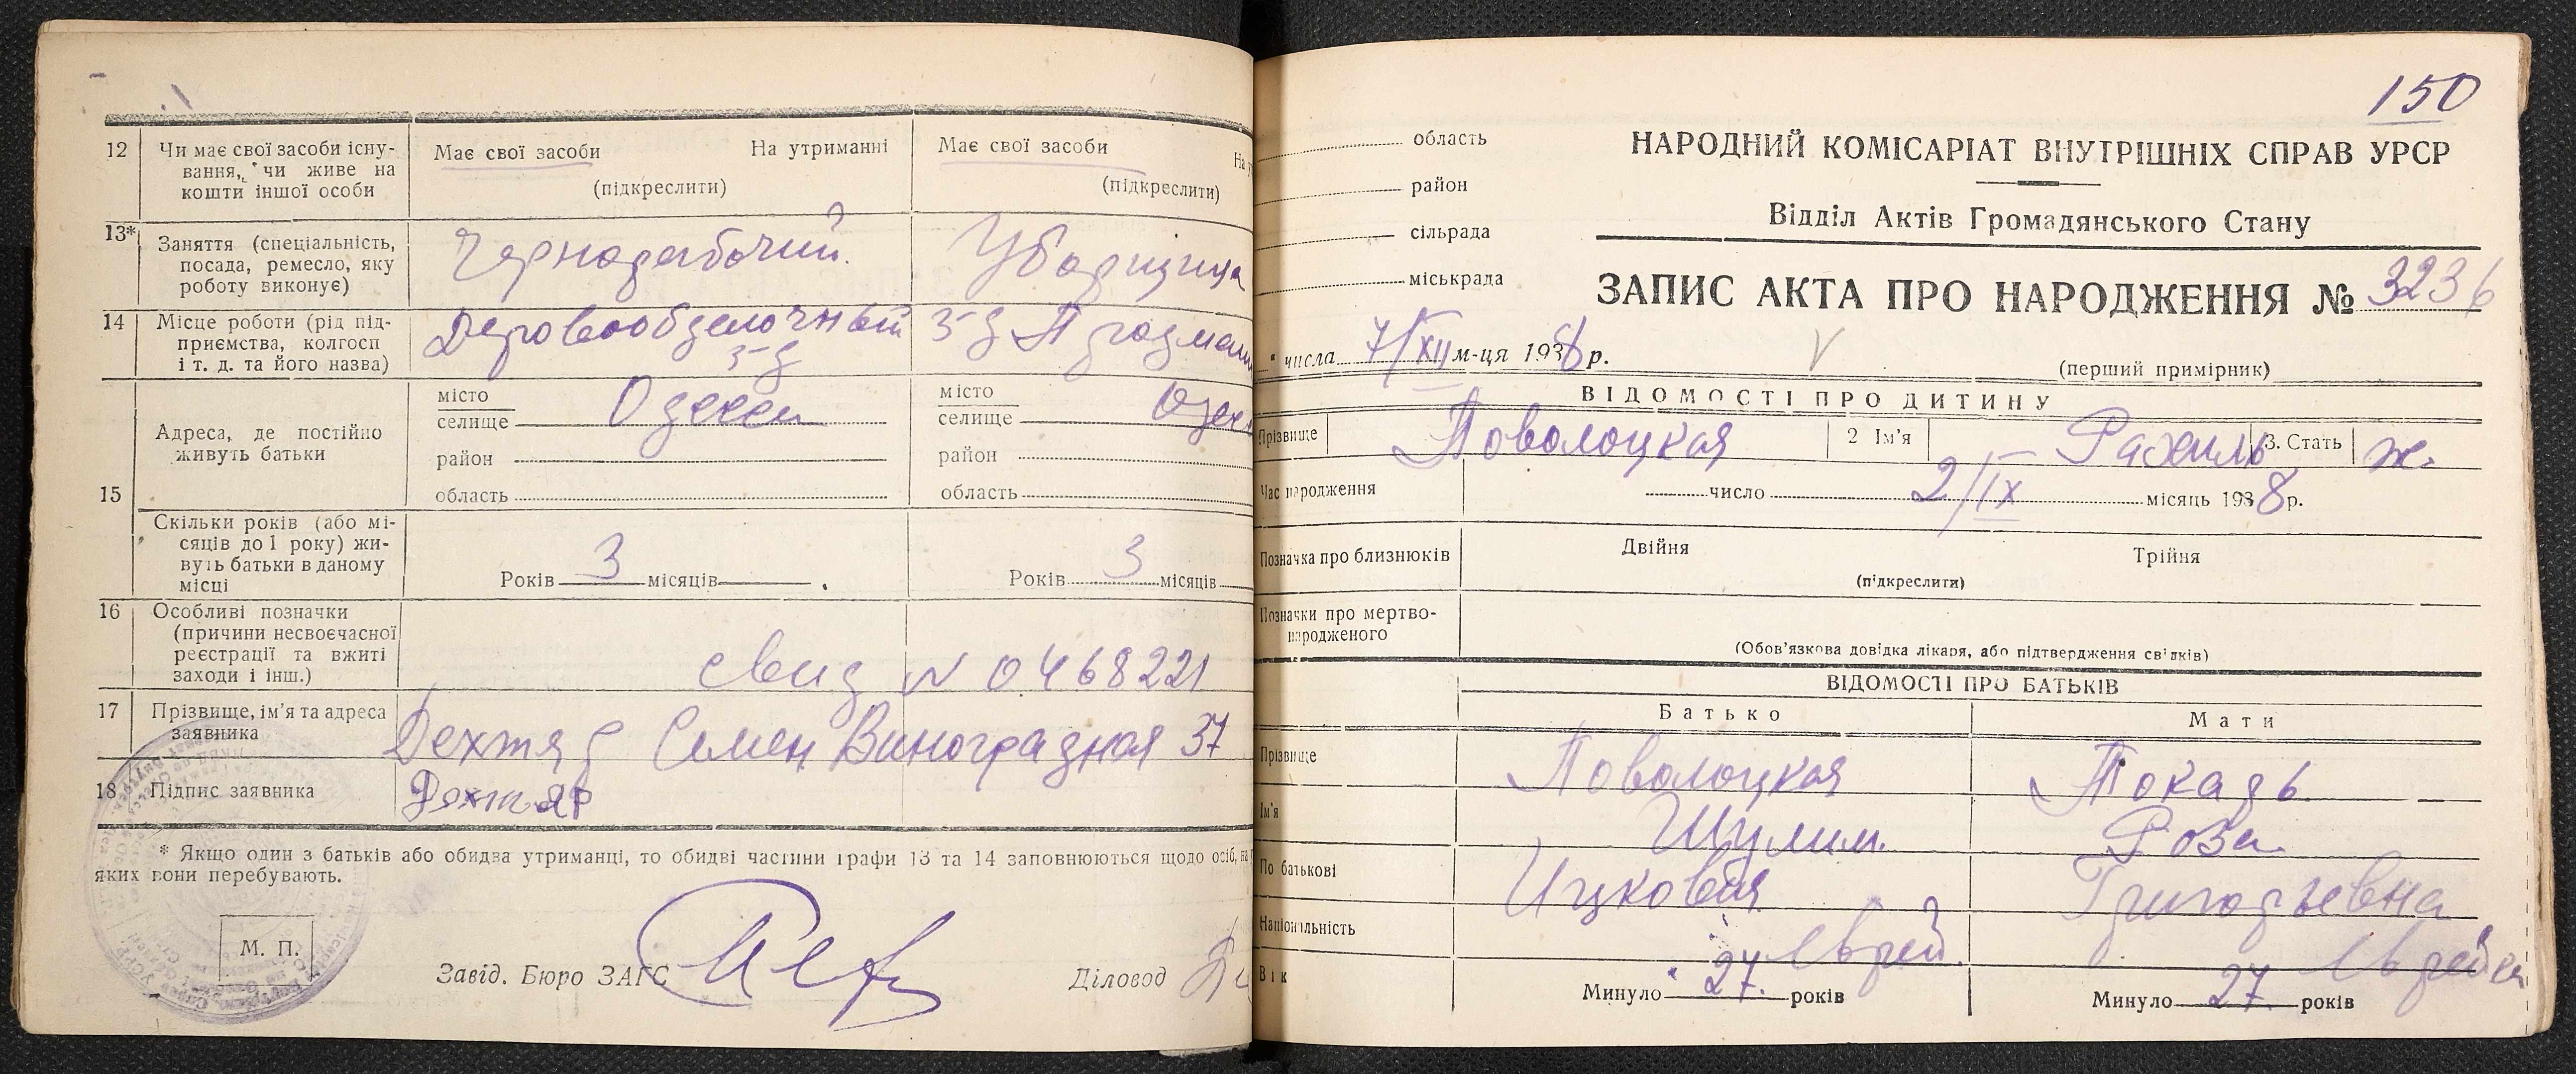 12 Чи має свої засоби існу-
вання, чи живе на
кошти іншої особи
Має свої засоби На утриманні
(підкреслити)
Має свої засоби
(підкреслити)
13* Заняття (спеціальність,
посада, ремесло, яку
роботу виконує)
Чернорабочий.
Уборщица
14 Місце роботи (рід під-
приємства, колгосп
і т. д. та його назва)
Деровообделочный
з-д
з-д Продмаш
15 Адреса, де постійно
живуть батьки
місто
селище Одесса
район
область
місто
селище Одес
район
область
Скільки років (або мі-
сяців до 1 року) жи-
вуть батьки в даному
місці
Років 3 місяців
Років 3 місяців
16 Особливі позначки
(причини несвоєчасної
реєстрації та вжиті
заходи і інш.)
свид N 0468221
17 Прізвище, ім'я та адреса
заявника
Дехтяр Семен Виноградная 37
18 Підпис заявника
Дехтяр
* Якщо один з батьків або обидва утриманці, то обидві частини графи 13 та 14 заповнюються щодо осіб, на
яких вони перебувають.
М. П.
Завід. Бюро ЗАГС
Діловод
150
область
район
сільрада
міськрада
НАРОДНИЙ КОМІСАРІАТ ВНУТРІШНІХ СПРАВ УРСР
Відділ Актів Громадянського Стану
ЗАПИС АКТА ПРО НАРОДЖЕННЯ № 3236
" числа 7/XII м-ця 1938 р.
(перший примірник)
ВІДОМОСТІ ПРО ДИТИНУ
Прізвище Поволоцкая 2 Ім'я Рахиль 3. Стать ж.
Час народження число 2/IX місяць 1938 р.
Позначка про близнюків Двійня Трійня
(підкреслити)
Позначки про мертво-
народженого
(Обов'язкова довідка лікаря, або підтвердження свідків)
ВІДОМОСТІ ПРО БАТЬКІВ
Батько Мати
Прізвище Поволоцкая Токарь
Ім'я Шулим. Роза
По батькові Ицковая Григорьевна
Національність Еврей. Еврейка
Вік Минуло 27. років Минуло 27 років